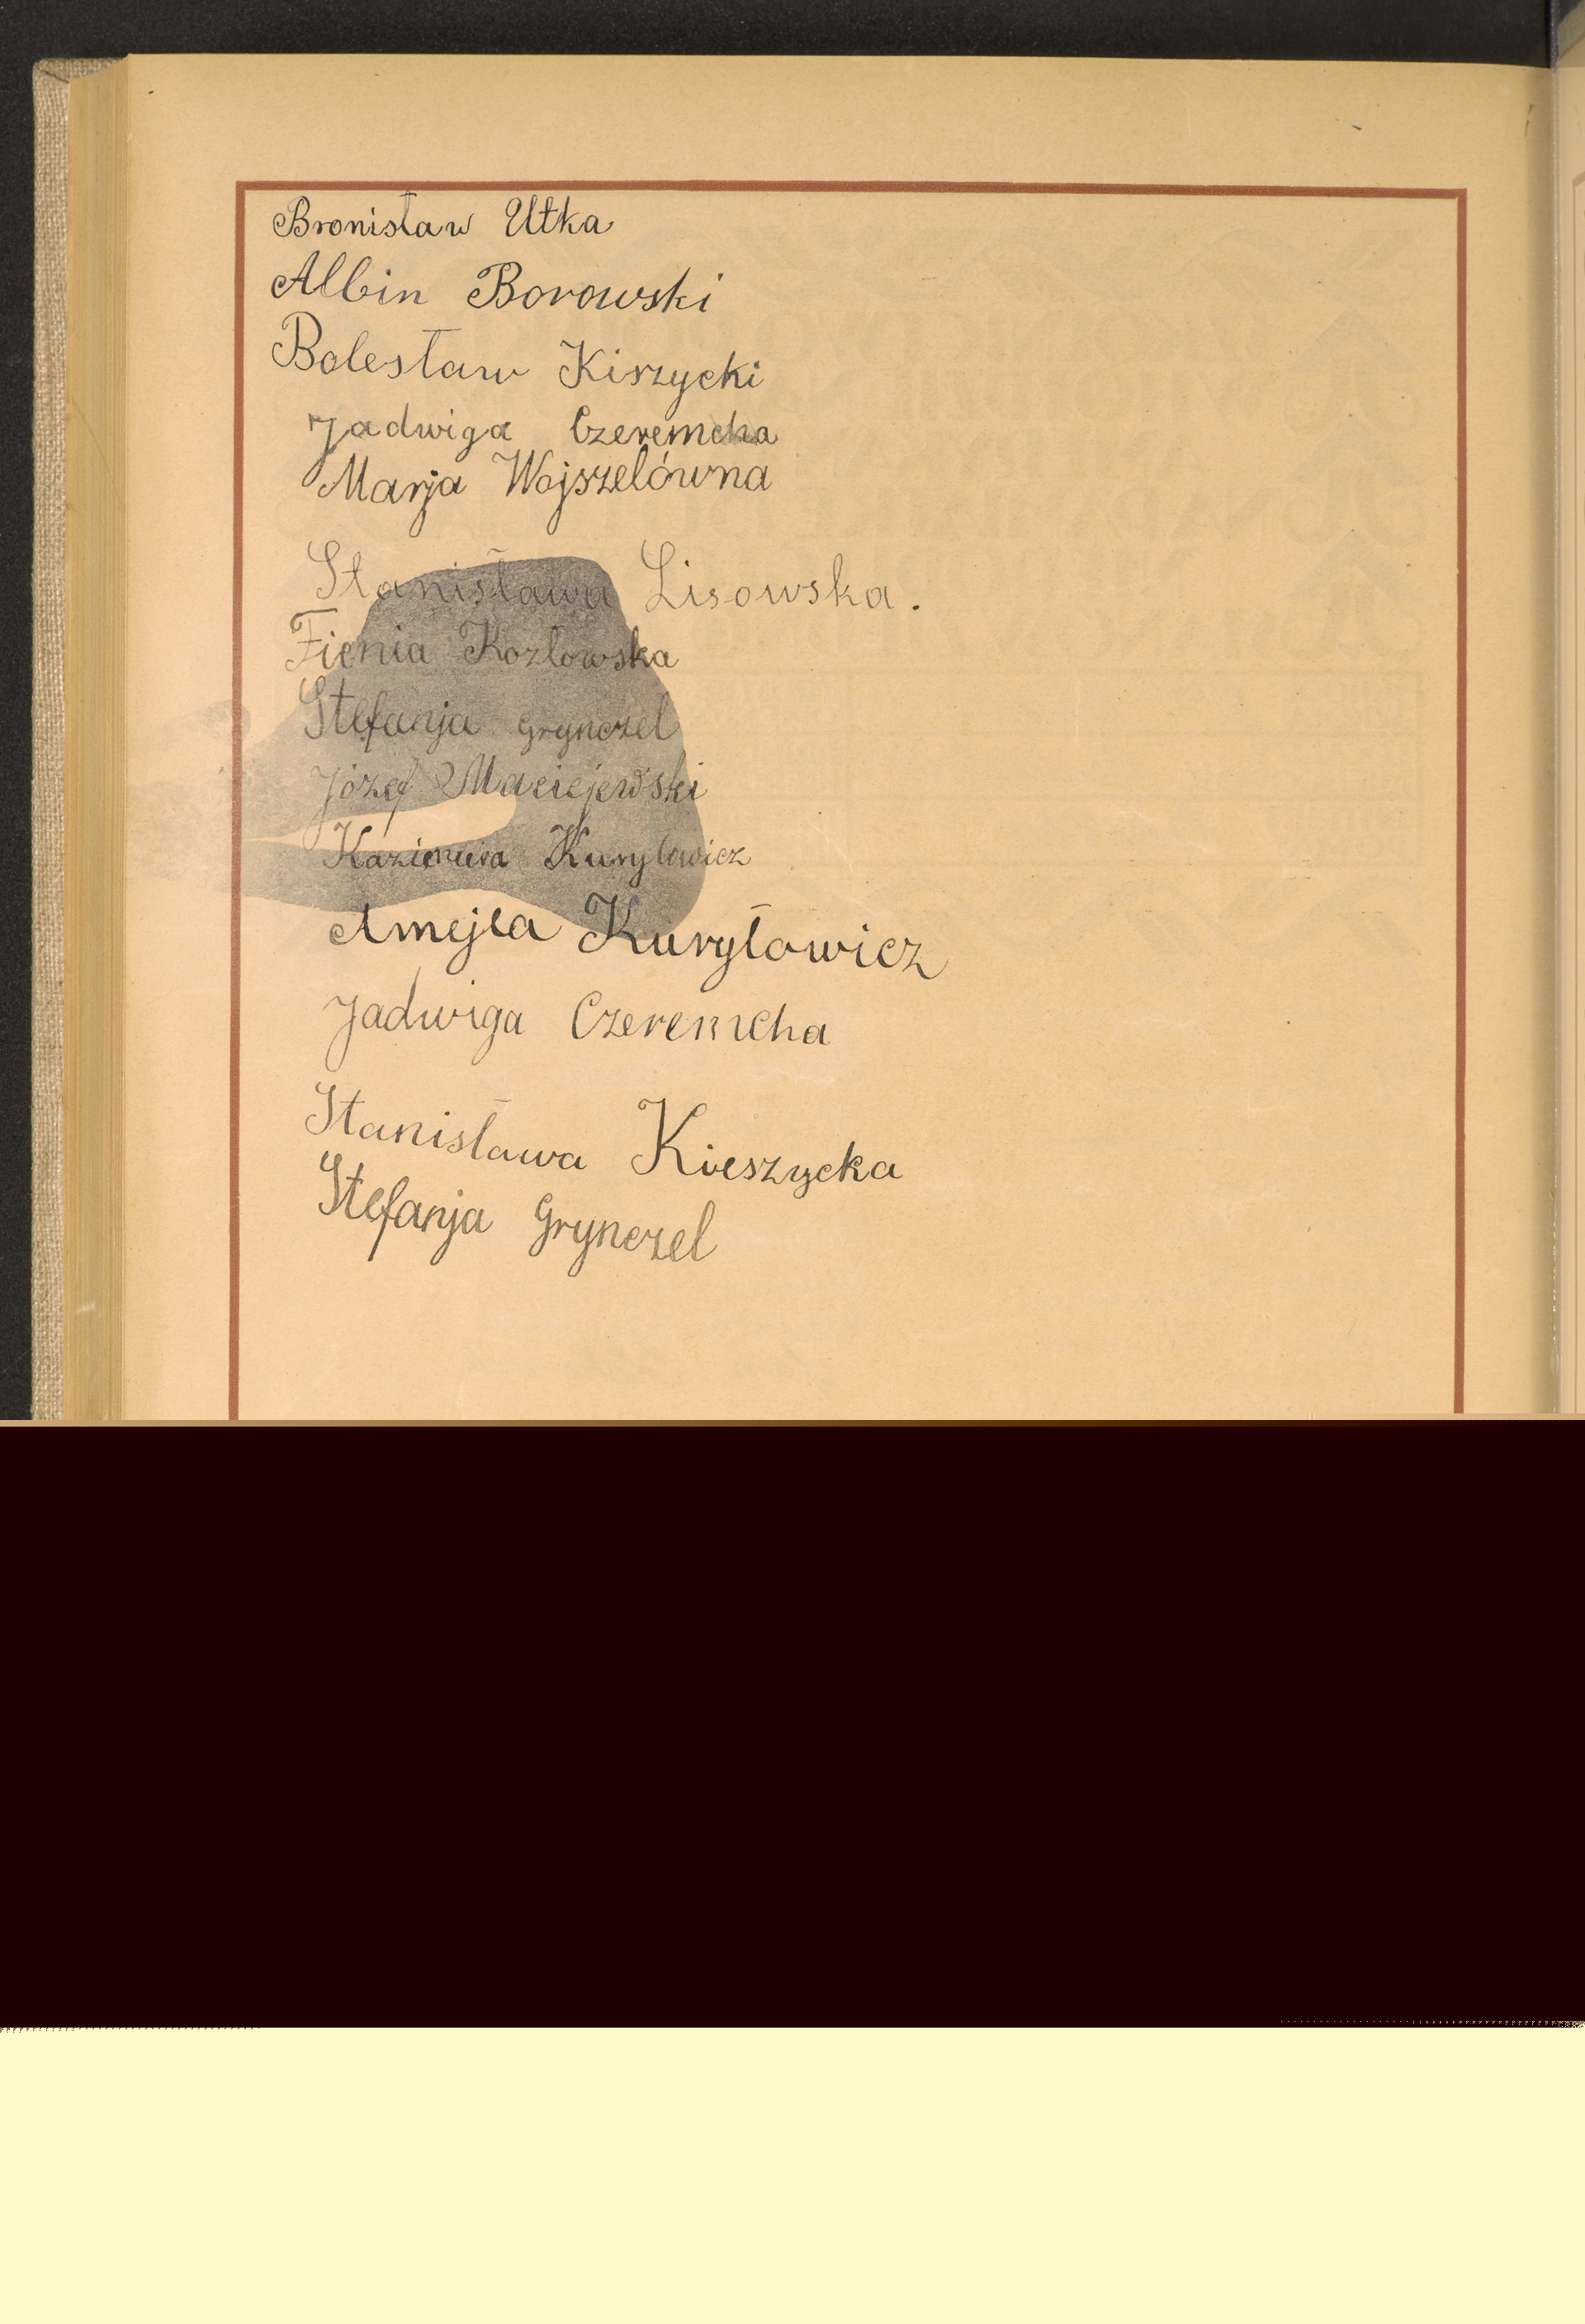 Bronisław Utka
Albin Borowski
Bolesław Kiszycki
Jadwiga Czeremcha
Marja Wojszelówna
Stanisława Lisowska.
Fienia Kozłowska
Stefanja Grynczel
Józef Maciejewski
Kazimiera Kuryłowicz
Amejla Kuryłowicz
Jadwiga Czeremcha
Stanisława Kieszycka
Stefanja Grynczel